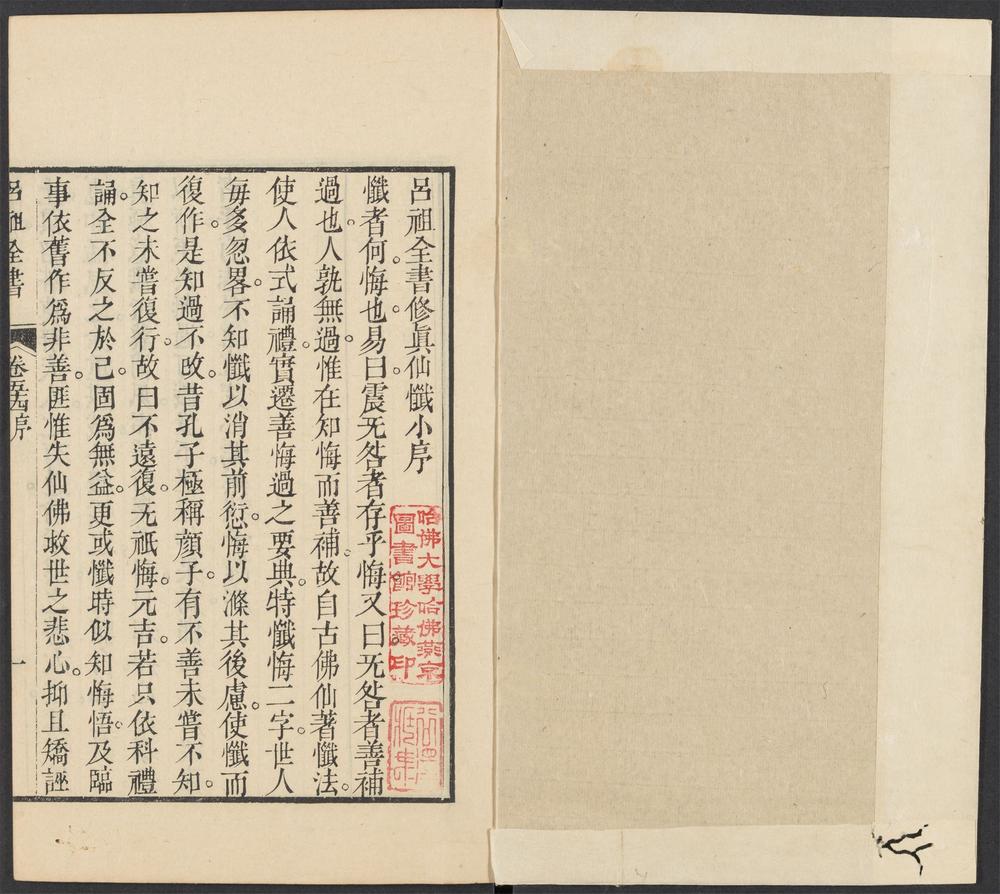 呂祖全書修眞仙懺小序
懺者何。悔也。易曰。震无咎者存乎悔。又曰。无咎者善補
過也。人孰無過。惟在知悔而善補。故自古佛仙著懺法。
使人依式誦禮。實遷善悔過之要典。特懺悔二字。世人
每多忽畧。不知懺以消其前愆。悔以滌其後慮。使懺而
復作。是知過不改。昔孔子極稱顏子。有不善未嘗不知。
知之未嘗復行。故曰不遠復。无祇悔。元吉。若只依科禮
誦。全不反之於己。固爲無益。更或懺時似知悔悟。及臨
事依舊作爲非善。匪惟失仙佛救世之悲心。抑且矯誣
呂祖全書
卷五十四序
一
哈佛大學哈佛燕京
圖書館珍藏印